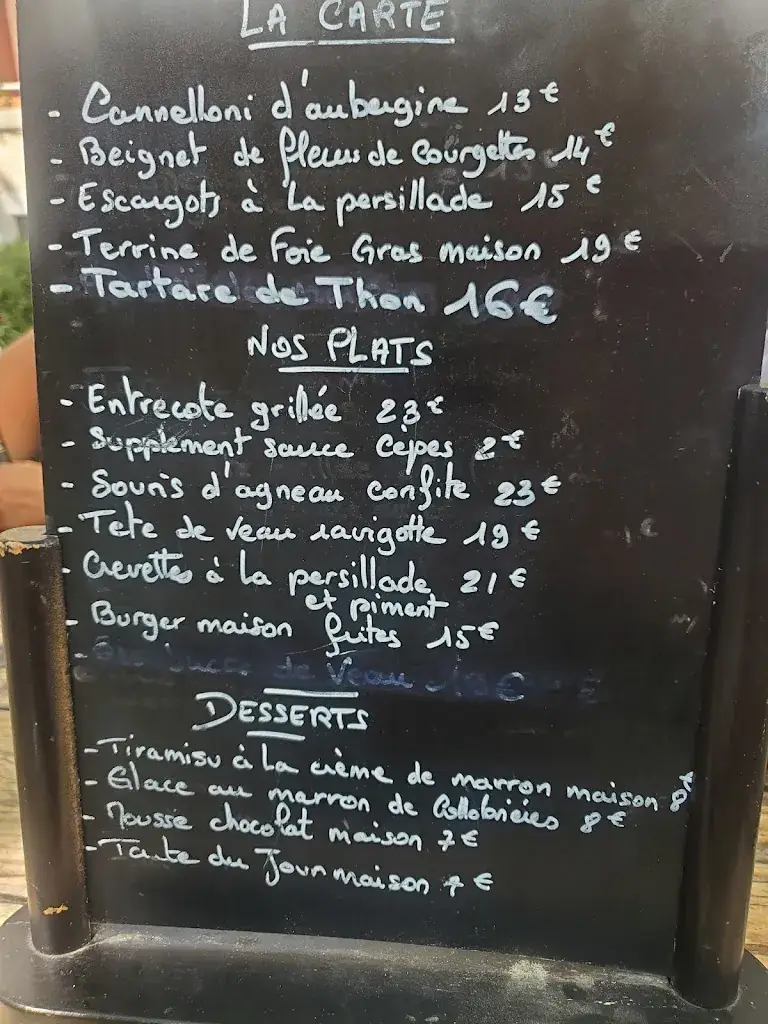 LA CARTE
- Cannelloni d'aubergine 13€
- Beignet de fleurs de Courgettes 14€
- Escargots à La persillade 15€
- Terrine de Foie Gras maison 19€
- Tartare de Thon 16€
NOS PLATS
- Entrecote grillée 23€
- Supplement sauce Cèpes 2€
- Souris d'agneau confite 23€
- Tete de veau ravigotte 19€
- Crevettes à la persillade 21€
et piment
- Burger maison frites 15€
de Veau 19€
DESSERTS
- Tiramisu à La crème de marron maison 8€
- Glace au marron de Collobrières 8€
- Mousse chocolat maison 7€
- Tarte du Jour maison 7€